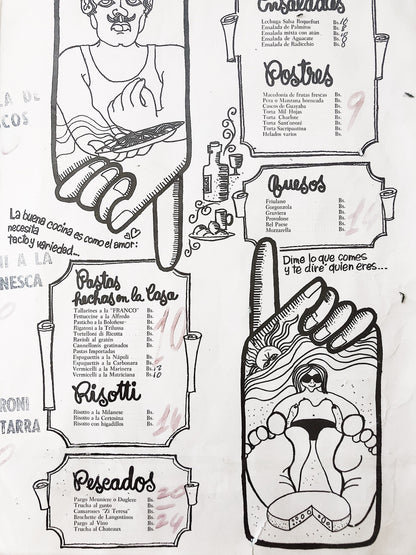 Ensaladas
Lechuga Salsa Roquefort Bs. 16
Ensalada de Palmitos Bs. 8
Ensalada mixta con atún Bs. 10
Ensalada de Aguacate Bs. 8
Ensalada de Radicchio Bs. 8
Postres
Macedonia de frutas frescas Bs.
Pera o Manzana horneada Bs.
Cascos de Guayaba Bs.
Torta Mil Hojas Bs.
Torta Charlote Bs.
Torta Sant'onoré Bs.
Torta Sacripantina Bs.
Helados varios Bs.
9
Quesos
Friulano Bs.
Gorgonzola Bs.
Gruviera Bs.
Provolone Bs.
Bel Paese Bs.
Mozzarella Bs.
LA DE
COS
La buena cocina es como el amor:
necesita
tacto y variedad...
Dime lo que comes
y te diré quien eres...
NI A LA
NESCA
Pastas
hechas en la Casa
Tallarines a la "FRANCO" Bs.
Fettuccine a la Alfredo Bs.
Pasticho a la Boloñese Bs.
Rigatoni a la Trilussa Bs.
Tortelloni de Ricotta Bs.
Ravioli al gratén Bs.
Cannellonis gratinados Bs.
Pastas Importadas
Espaguettis a la Nápoli Bs.
Espaguettis a la Carbonara Bs.
Vermicelli a la Marinera Bs. 12
Vermicelli a la Matriciana Bs. 10
10
Risotti
Risotto a la Milanese Bs.
Risotto a la Certosina Bs.
Risotto con higadillos Bs.
14
RONI
TARRA
Pescados
Pargo Meuniere o Duglere Bs. 20
Trucha al gusto Bs.
Camarones "Zi Teresa" Bs.
Brochette de Langostinos Bs. 24
Pargo al Vino Bs.
Trucha al Chateaux Bs.